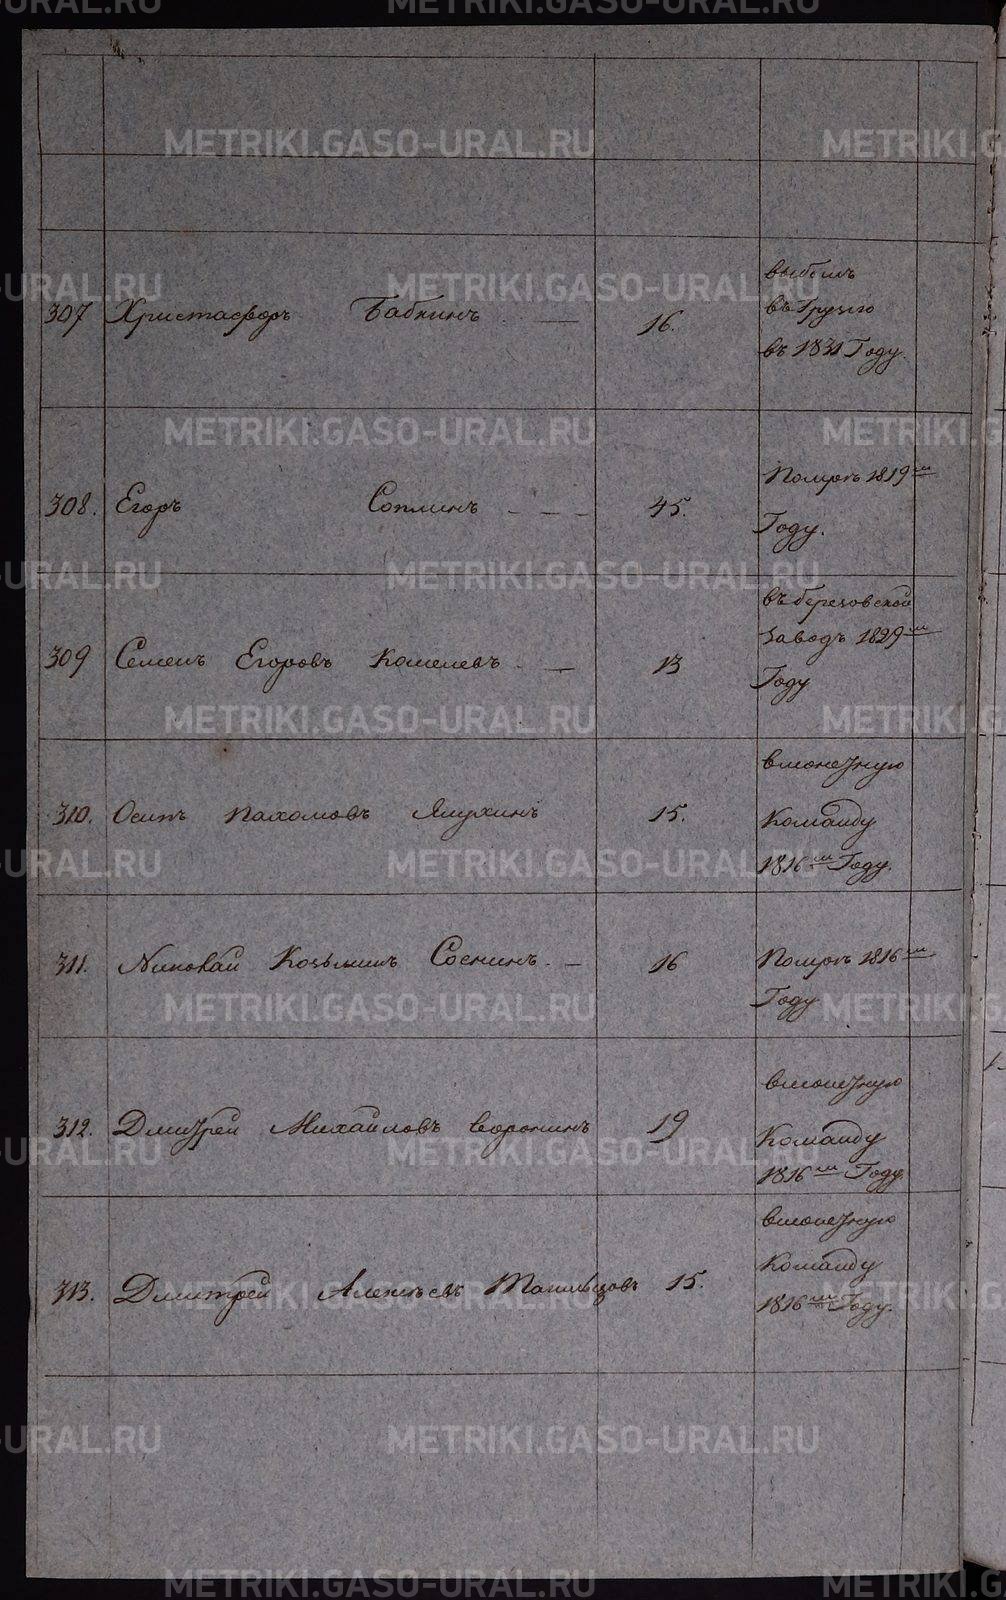 307 Христафоръ Бабкинъ — 16. выбылъ
въ Грузію
въ 1831 Году.
308. Егоръ Соплинъ - - - 45. Помръ 1819 м
Году.
309 Семенъ Егоровъ Кошелевъ — 13 въ березовской
заводъ 1829 м
Году
310. Осипъ Пахомовъ Ялухинъ 15. вмонетную
Команду
1816 м Году.
311. Николай Козьминъ Соснинъ — 16 Помръ 1816 м
Году
312. Дмитрей Михайловъ воронинъ 19 вмонетную
Команду
1816 м Году
313. Дмитрей Алексѣевъ Тагильцовъ 15. вмонетную
Команду
1816 м Году.
METRIKI.GASO-URAL.RU